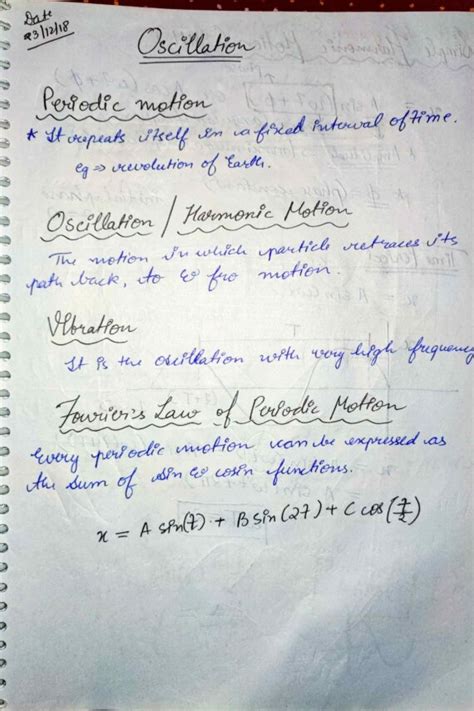 Date
23/12/18
Oscillation
Periodic motion
* It repeats itself in a fixed interval of time.
eg ⇒ revolution of Earth.
Oscillation / Harmonic Motion
The motion in which particle retraces its
path back, to & fro motion.
Vibration
It is the oscillation with very high frequency
Fourier's Law of Periodic Motion
Every periodic motion can be expressed as
the sum of sin & cosin functions.
x = A sin(7) + B sin(27) + C cos(7/2)